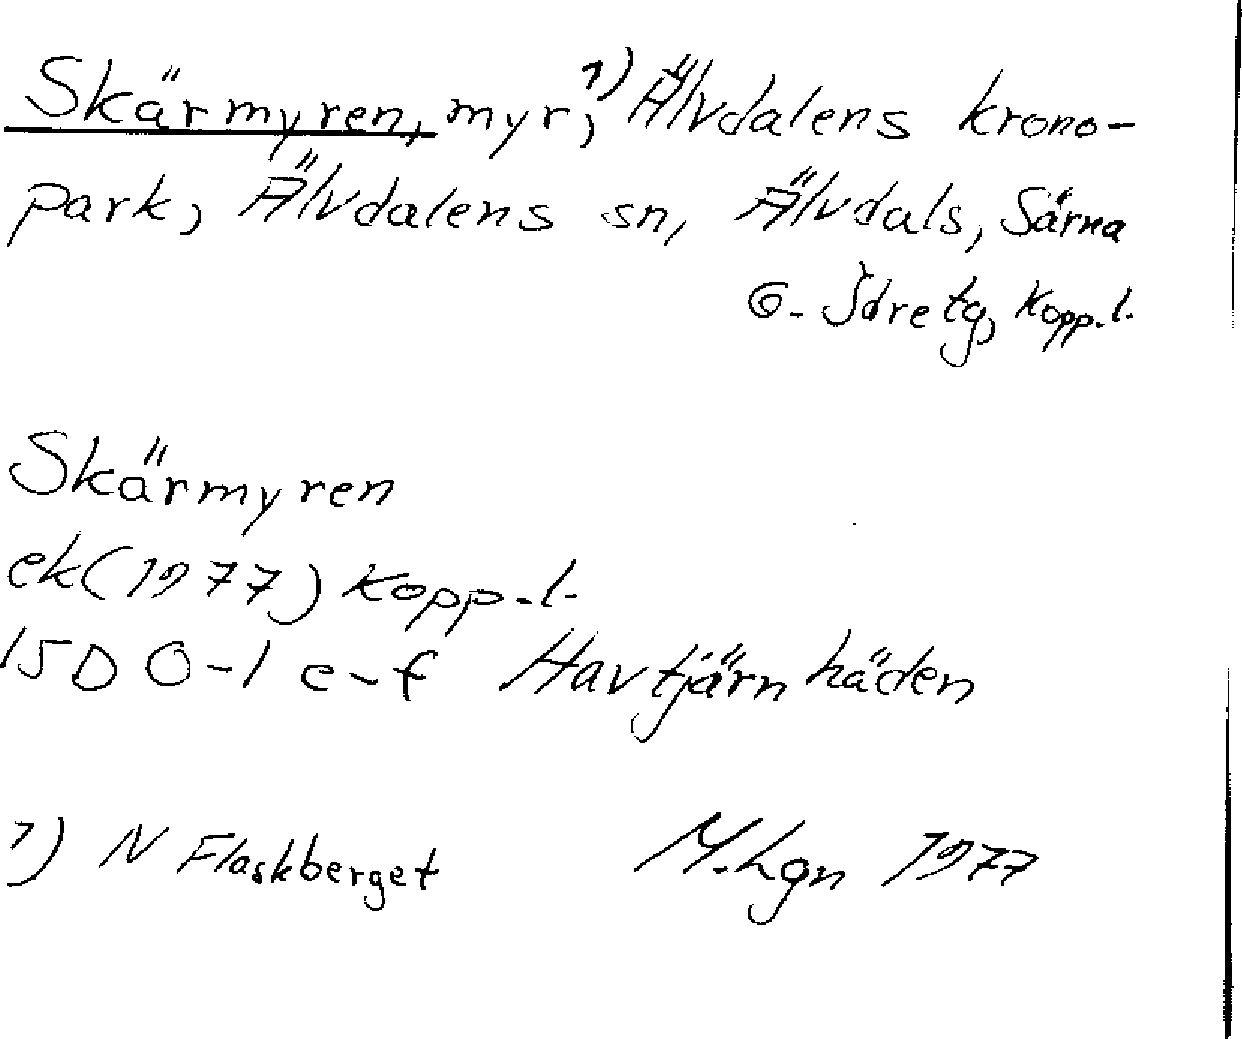 Skärmyren, myr,¹⁾ Älvdalens krono-
park, Älvdalens sn, Älvdals, Särna
o. Idre tg, Kopp.l.
Skärmyren
ek(1977) Kopp.l.
15D 0-1 e-f Havtjärnhäden
1) N Flaskberget M.Lgn 1977